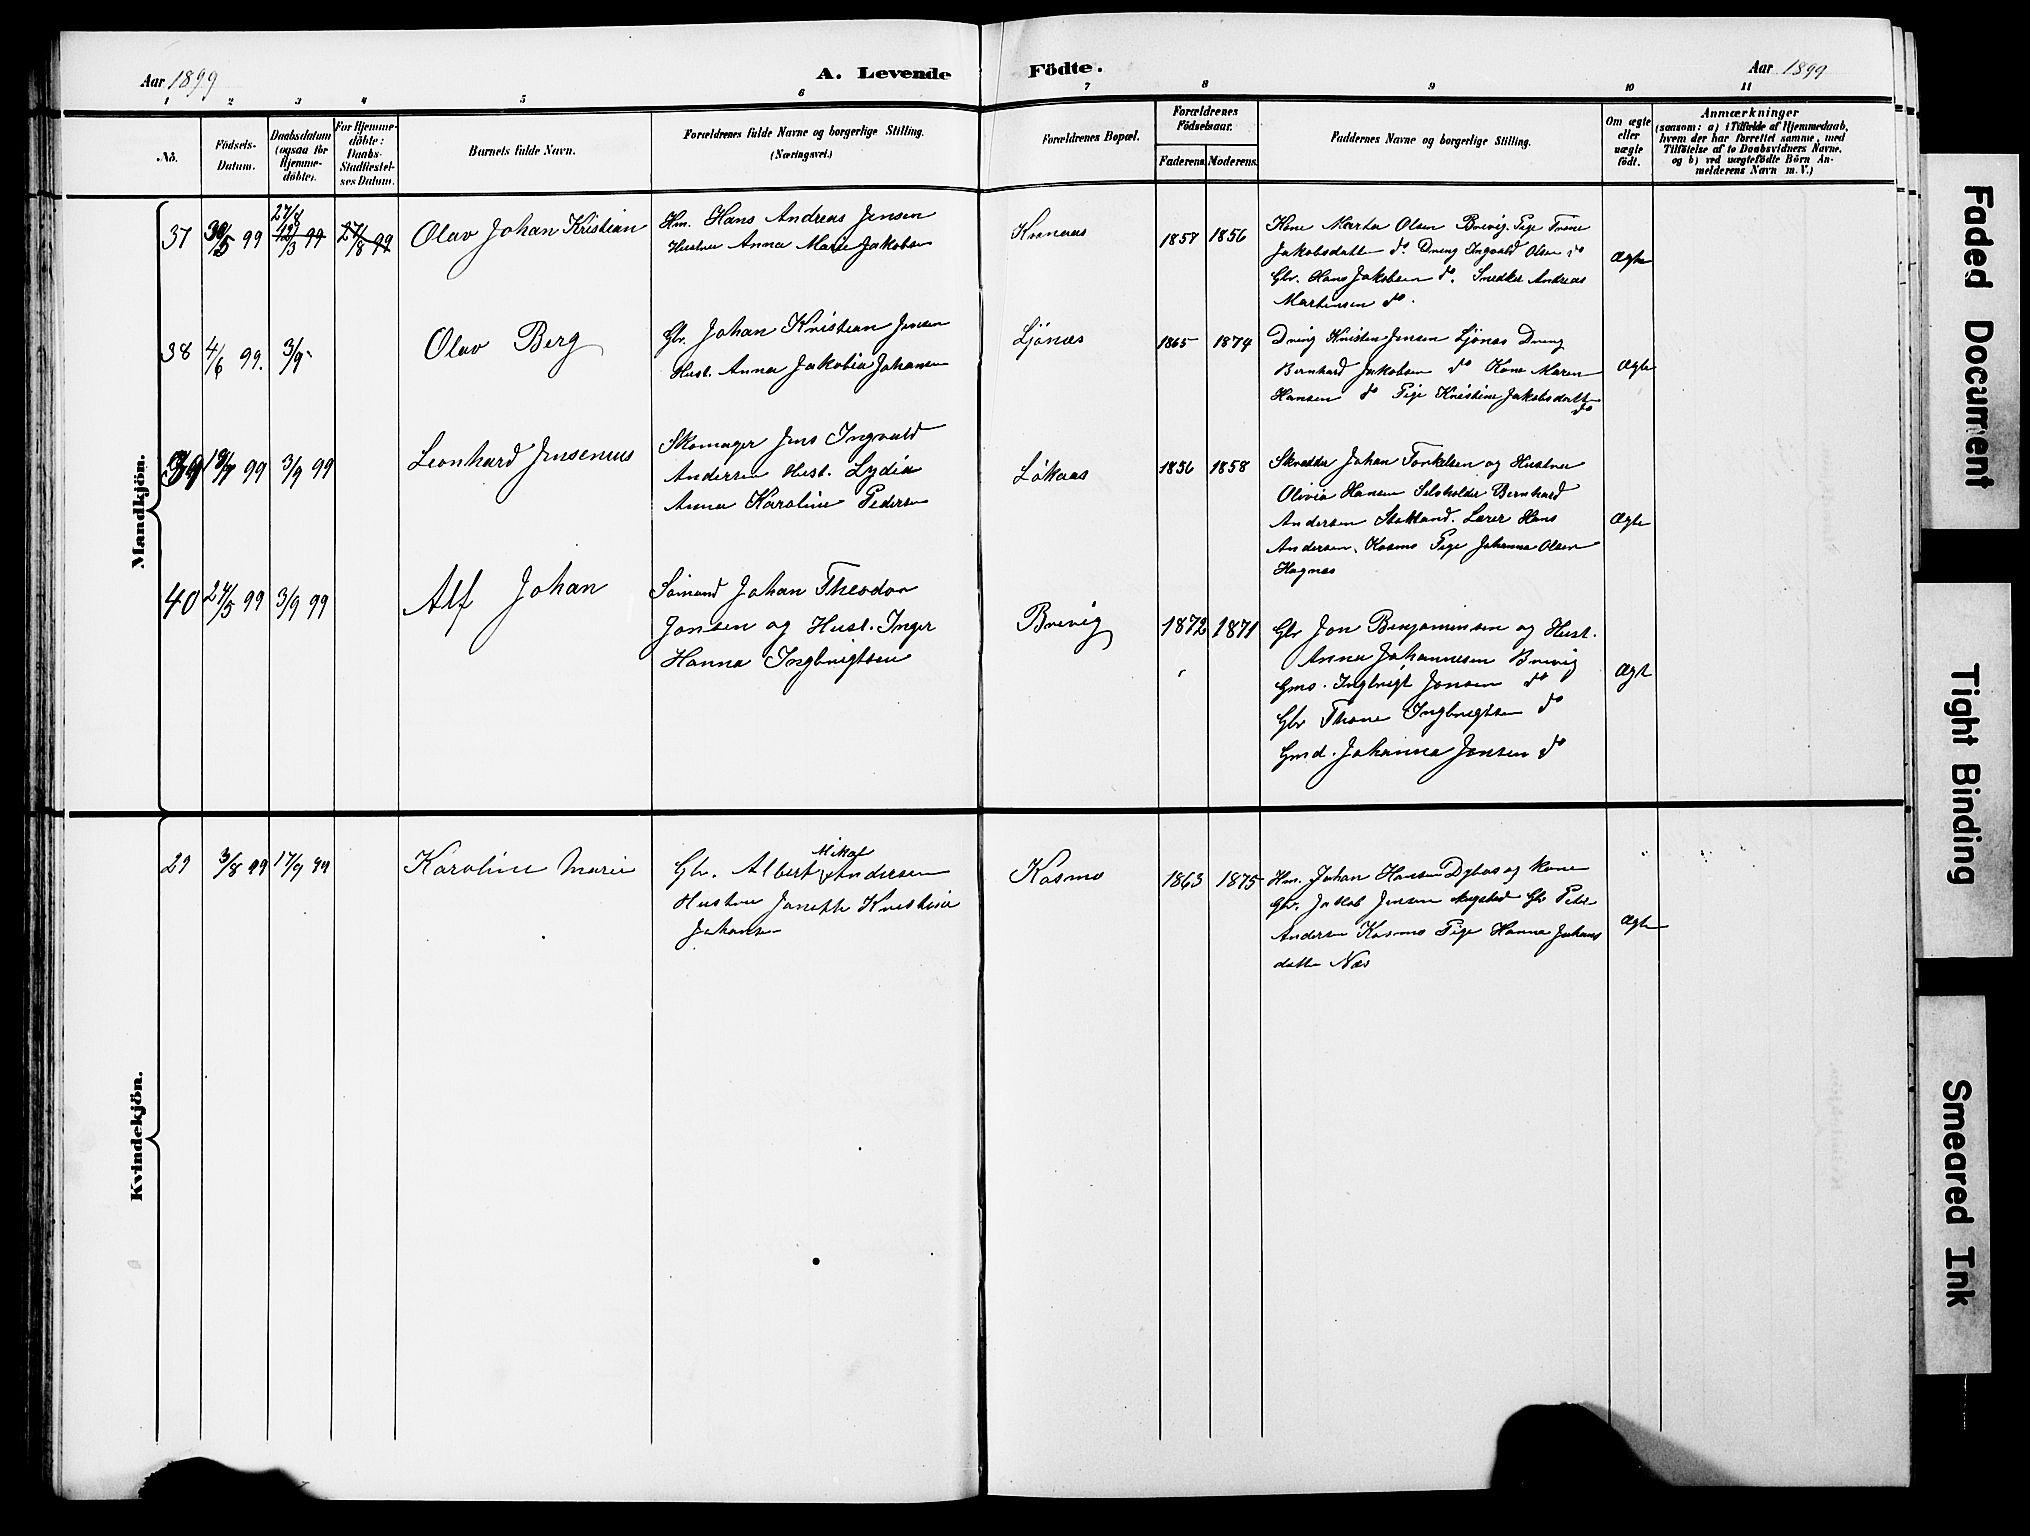 Aar 1899
A. Levende Födte.
Aar 1899
1 2 3 4 5 6 7 8 9 10 11
No.
Födsels-Datum.
Daabsdatum (ogsaa for Hjemmedöbte).
For Hjemmedöbte: Daabs-Stadfæstelses Datum.
Barnets fulde Navn.
Forældrenes fulde Navne og borgerlige Stilling. (Næringsvei.)
Forældrenes Bopæl.
Forældrenes Födselsaar.
Faderens. Moderens.
Faddernes Navne og borgerlige Stilling.
Om ægte eller uægte födt.
Anmærkninger
(saasom: a) i Tilfælde af Hjemmedaab,
hvem der har forrettet samme, med
Tilföielse af to Daabsvidners Navne,
og b) ved uægtefödte Börn An-
melderens Navn m. V.)
Mandkjön.
37 30/5 99 27/8 12/3 99 27/8 99 Olav Johan Kristian
Hm. Hans Andreas Jensen
Hustru Anna Marie Jakobsen
1857 1856
Kone Marta Olsen Brevig. Pige Trine
Jakobsdatter do. Dreng Ingvald Olsen do
Gbr. Hans Jakobsen do. Snedker Andreas
Martinsen do.
Ægte
38 4/6 99. 3/9- Olav Berg
Gbr. Johan Kristian Jensen
Hust. Anna Jakobia Johansen
Ljönæs 1865 1874
Dreng Kristen Jensen Ljönæs Dreng
Bernhard Jakobsen do Kone Maren
Hansen do Pige Kristine Jakobsdatter
do
Ægte
39 19/7 99 3/9 99 Leonhard Jensenius
Skomager Jens Ingvald
Andersen Hust. Lydia
Anna Karoline Pedersen
Løkaas 1856 1858
Skrædder Johan Torkelsen og Hustru
Olivia Hansen Selvholder Bernhard
Andersen Stokland. Lærer Hans
Andersen, Kosmo Pige Johanna Olsen
Hagnæs
Ægte
40 27/5 99 3/9 99 Alf Johan
Sömand Johan Theodor
Jonsen og Hust. Inger
Hanna Ingbrigtsen
Brevig 1872 1871
Gbr Jon Benjaminsen og Hust.
Anna Johannesen Brevig
Gms. Ingbrigt Jonsen do
Gbr Thone Ingbrigtsen do
Gmd. Johanna Jonsen do
Ægt
Kvindekjön.
29 3/8 99 17/9 99 Karoline Marie
Mikal
Gbr. Albert Andersen
Hustru Janette Kristine
Johansen
Kosmo 1863 1875
Hm. Johan Hansen Dybaas og Kone
Gbr. Jakob Jensen Gbr Peter
Andersen Kosmo Pige Hanna Johans
datter Næs
Ægte
Faded Document
Tight Binding
Smeared Ink